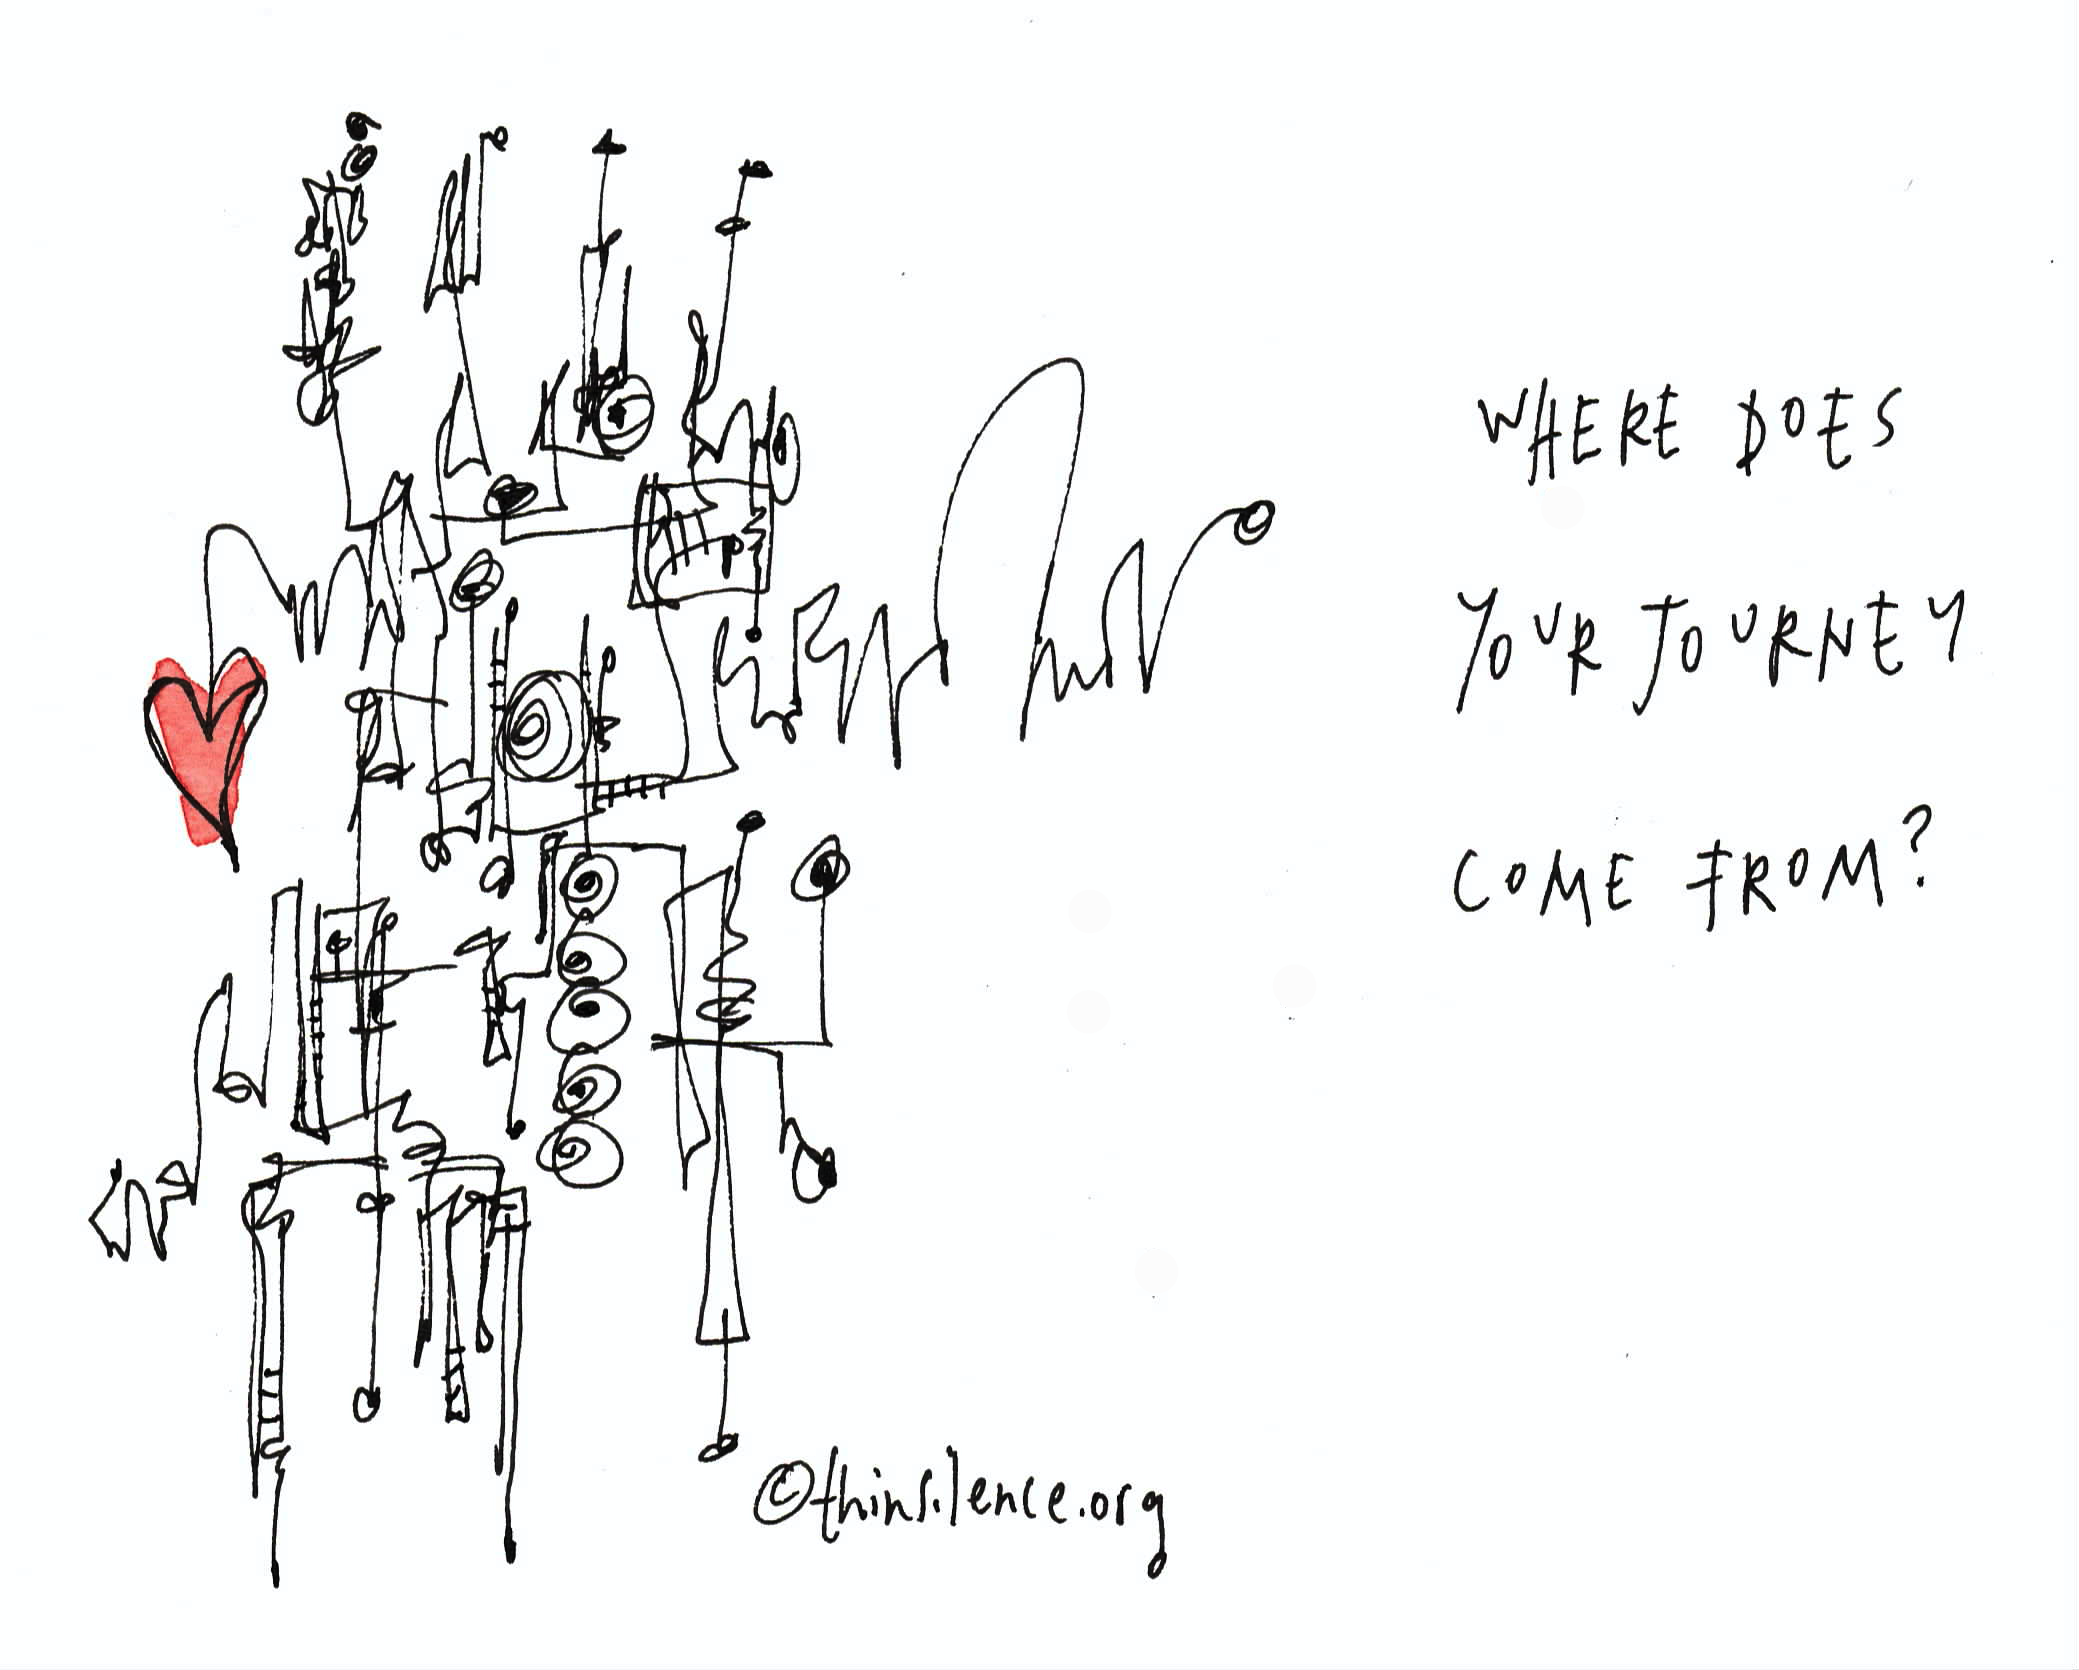 WHERE DOES
YOUR JOURNEY
COME FROM?
©thinsilence.org